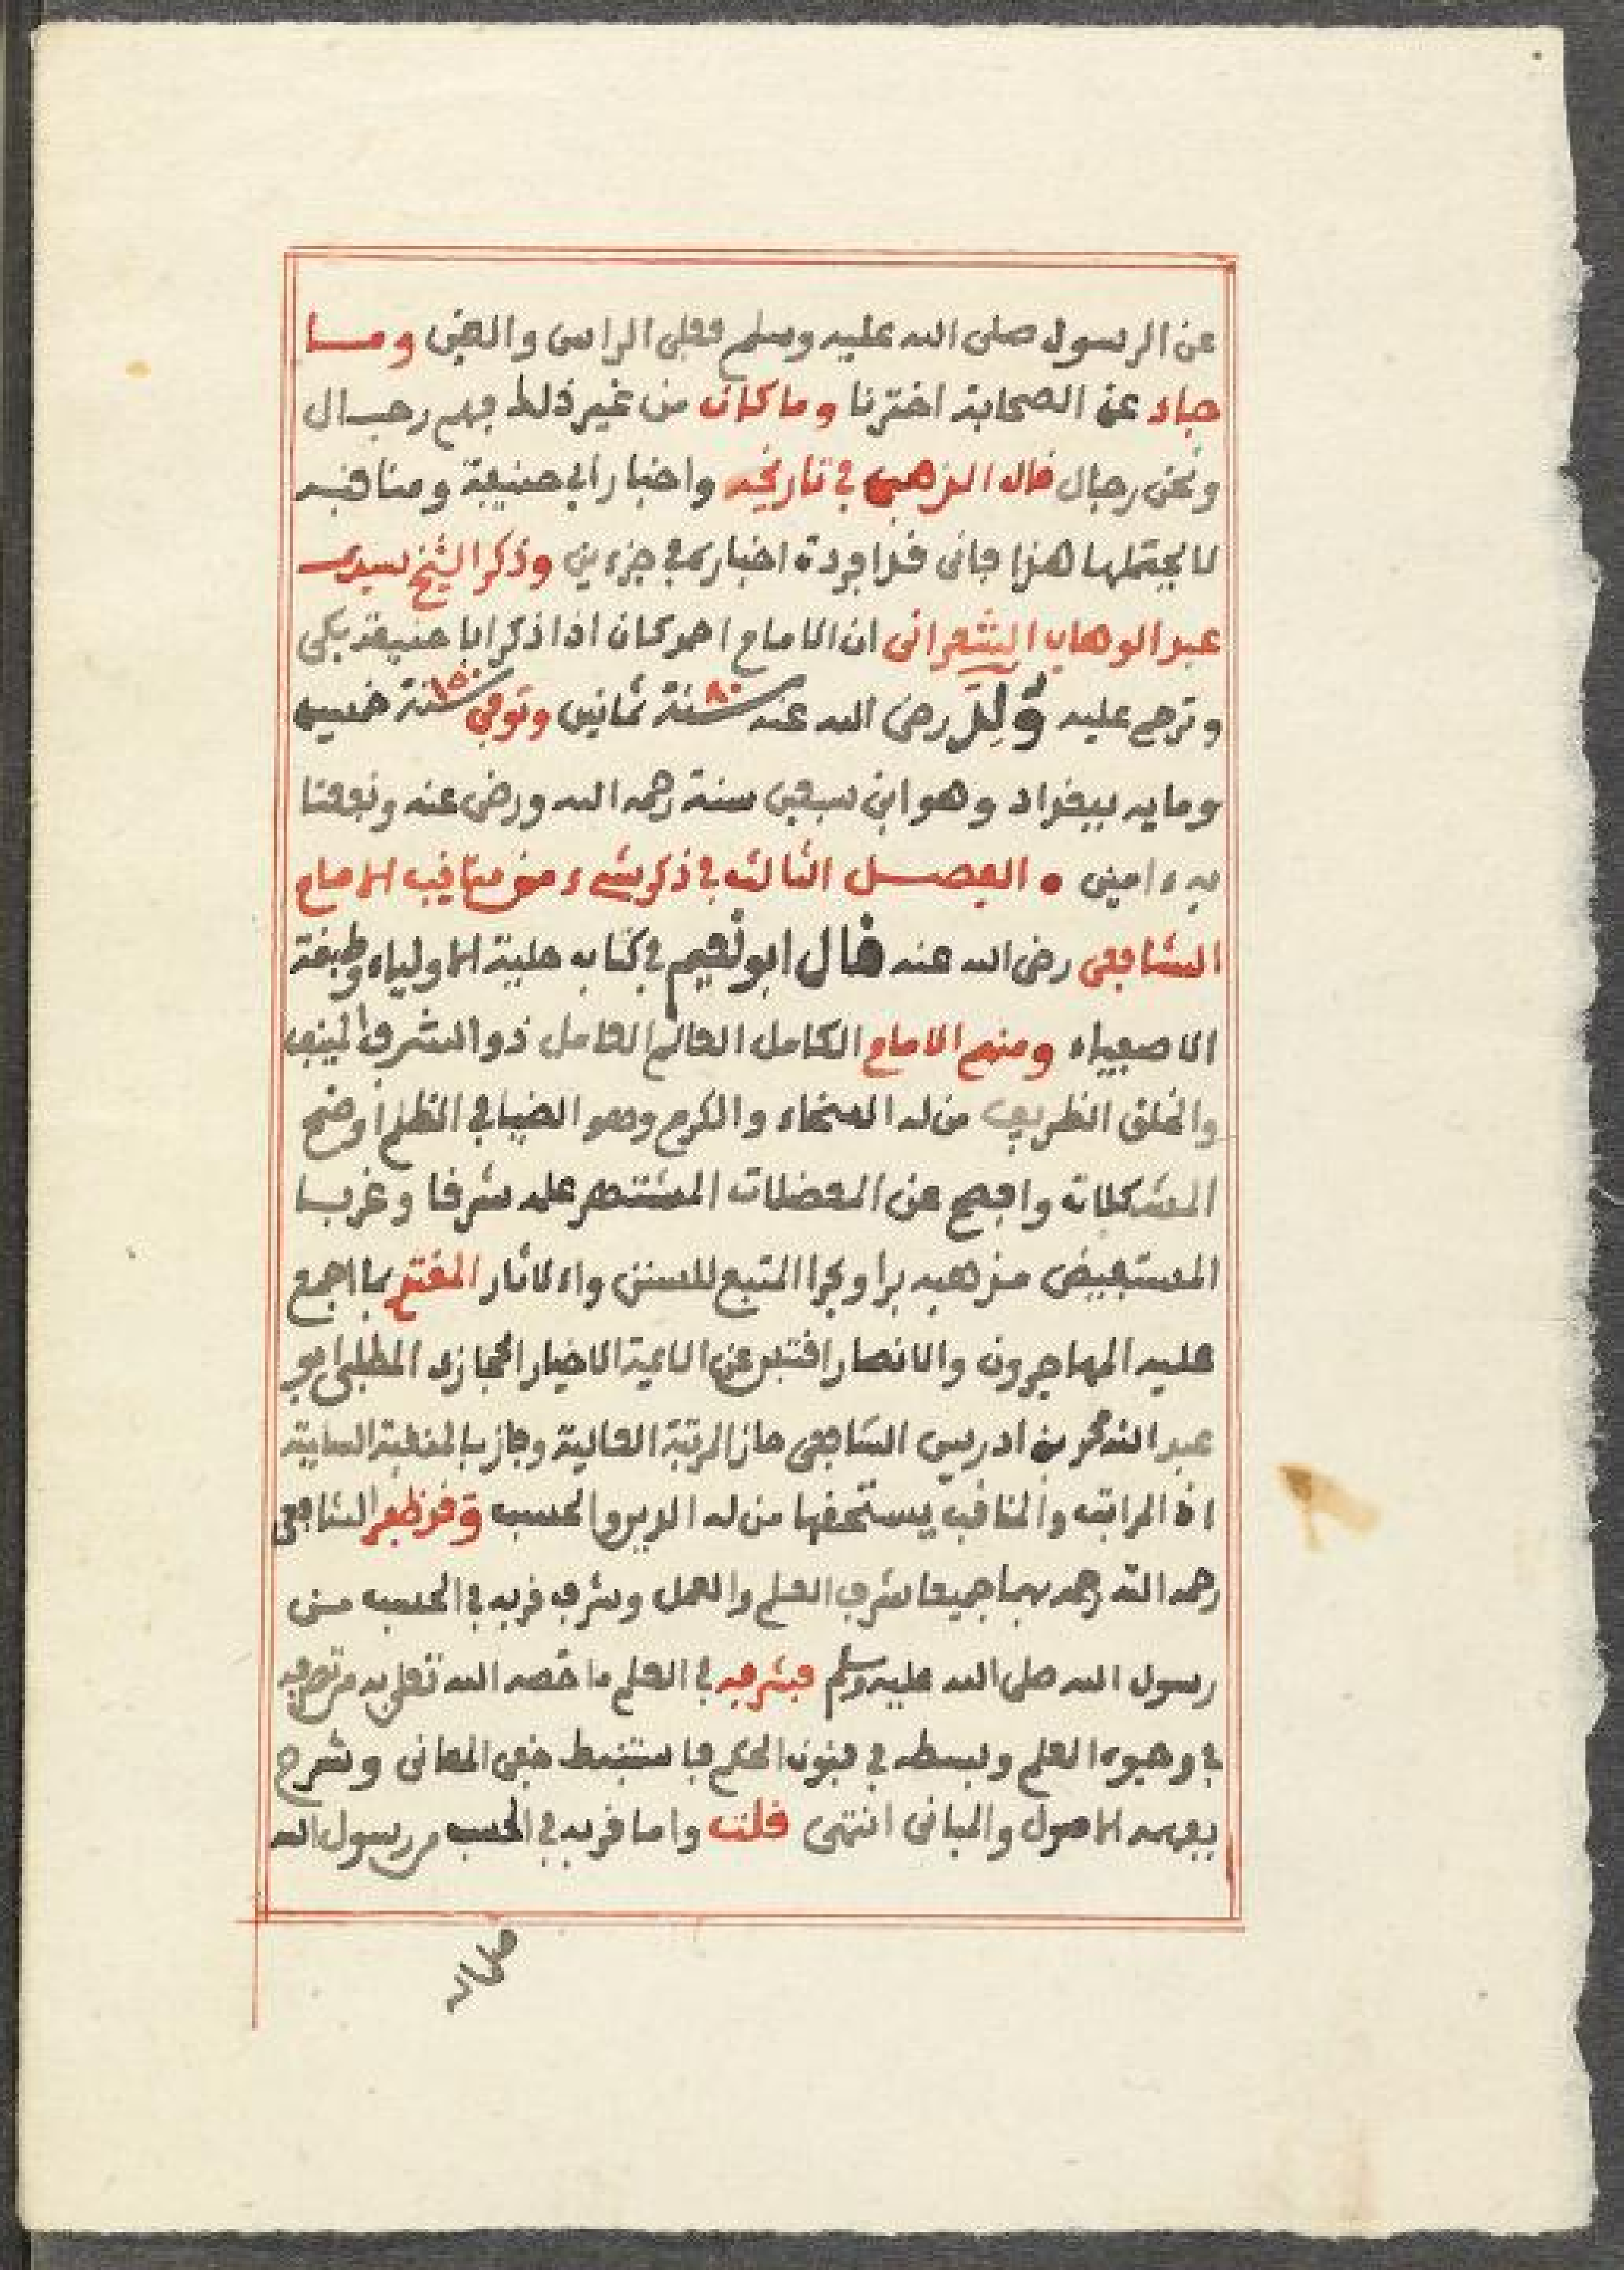 عن الرسول صلى الله عليه وسلم فعلى الراس والعين وما
جاء عن الصحابة اخترنا وما كان من غير ذلك فهم رجال
ونحن رجال قال الذهبي في تاريخه واخبار ابي حنيفة ومناقبه
لا يحتملها هذا فانى قد افردة اخباره في جزءين وذكر الشيخ سيدي
عبد الوهاب الشعراني ان الامام احمد كان اذا ذكر ابا حنيفة بكى
وترحم عليه وُلِدَ رضى الله عنه سنة ٨٠ ثمانين وتوفي سنة ١٥٠ خمسين
وماية ببغداد وهو ابن سبعين سنة رحمه الله ورضى عنه ونفعنا
به ءامين • الفصل الثالث في ذكر شيء من مناقب الامام
الشافعى رضى الله عنه قال ابو نعيم في كتابه حلية الاولياء وطبقة
الاصفياء ومنهم الامام الكامل العالم العامل ذو الشرف المنيف
والخلق الظريف من له السخاء والكرم وهو الضيا في الظلم اوضح
المشكلات وافصح عن المعضلات المنتشر علمه شرقا وغربا
المستفيض مذهبه برا وبحرا المتبع للسنن والاثار المقتدى بما اجمع
عليه المهاجرون والانصار اقتبس عن الايمة الاخيار الحجازي المطلبى ابو
عبد الله محمد بن ادريس الشافعى حاز المرتبة العالية وفاز بالمنقبة السامية
اذ المراتب والمناقب يستحقها من له الدين والحسب وقد ظفر الشافعى
رحمه الله بهما جميعا شرف العلم والعمل وشرف قربه في الحسب من
رسول الله صلى الله عليه وسلم فبشرفه في العلم ما خصه الله تعلى به من تصرفه
في وجوه العلم وبسطه في فنون الحكم فاستنبط خفى المعانى وشرح
بفهمه الاصول والمبانى انتهى قلت واما قربه في الحسب من رسول الله
صلى الله